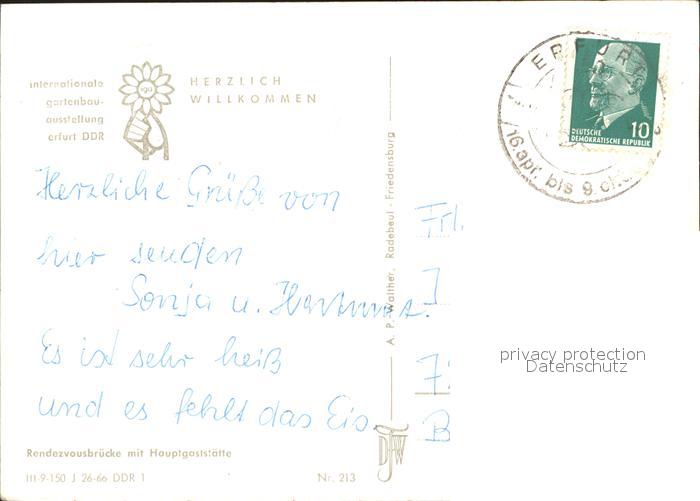 internationale
gartenbau-
ausstellung
erfurt DDR
iga
HERZLICH
WILLKOMMEN
ERFURT
16. apr. bis 9. okt.
10
DEUTSCHE
DEMOKRATISCHE REPUBLIK
Herzliche Grüße von
hier senden
Sonja u. Hartmut.
Es ist sehr heiß
und es fehlt das Eis.
A. P. Walther, Radebeul - Friedensburg
Frl.
J
B
privacy protection
Datenschutz
Rendezvousbrücke mit Hauptgaststätte
III-9-150 J 26-66 DDR 1
Nr. 213